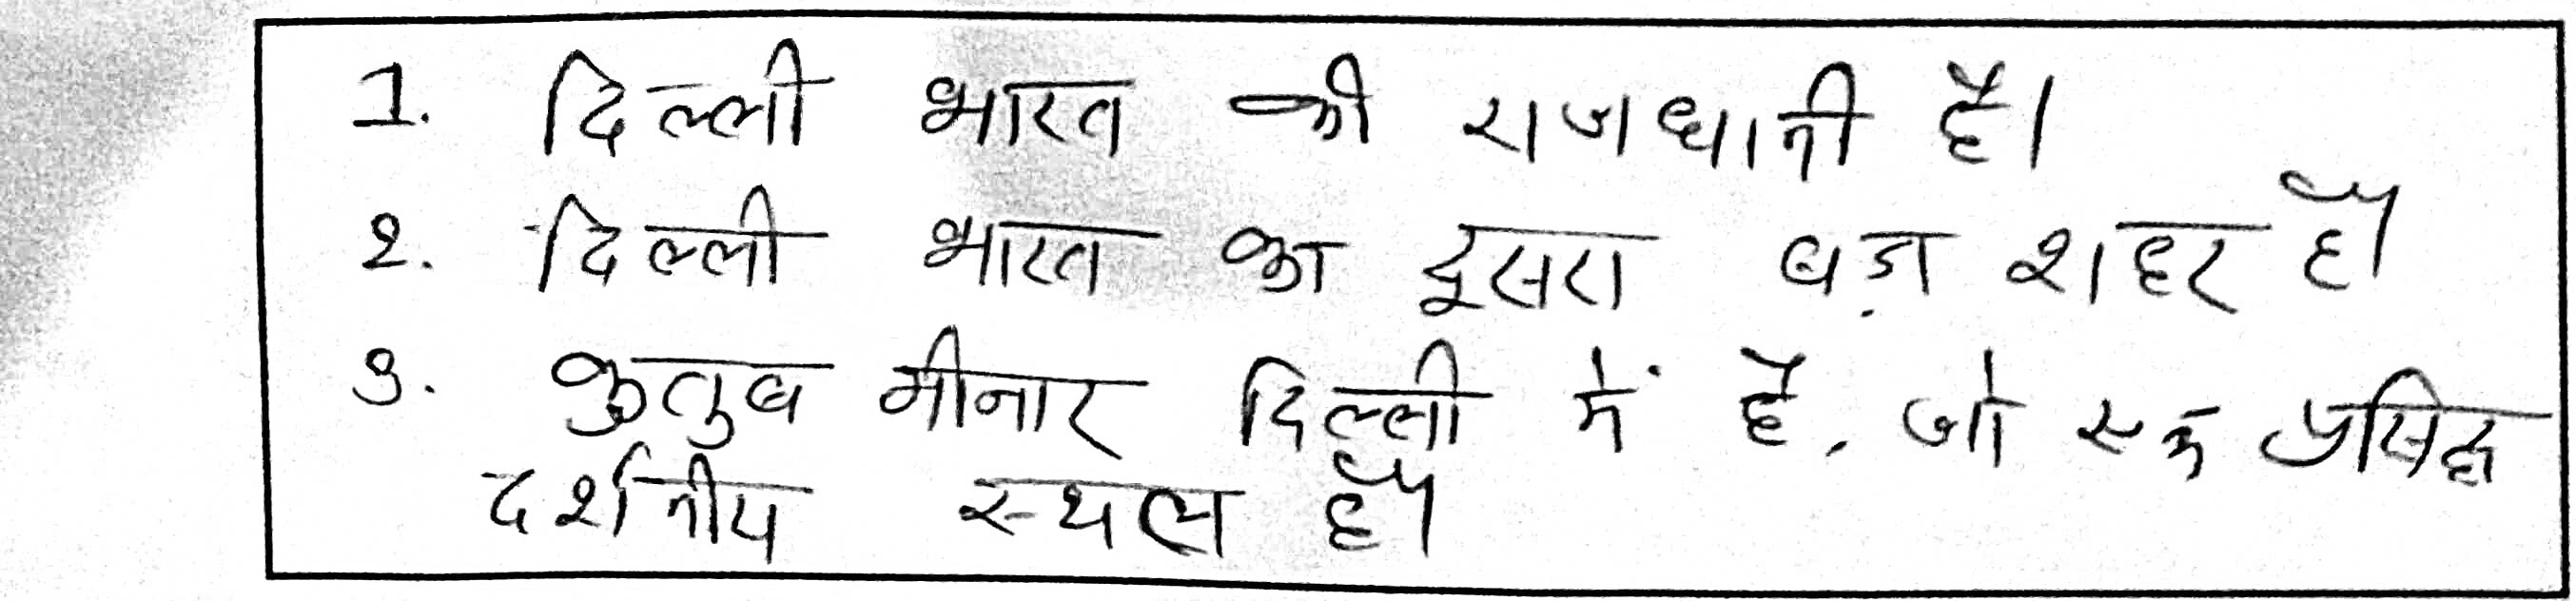 1. दिल्ली भारत की राजधानी है।
2. दिल्ली भारत का दूसरा बड़ा शहर है।
3. कुतुब मीनार दिल्ली में है, जो एक प्रसिद्ध
दर्शनीय स्थल है।